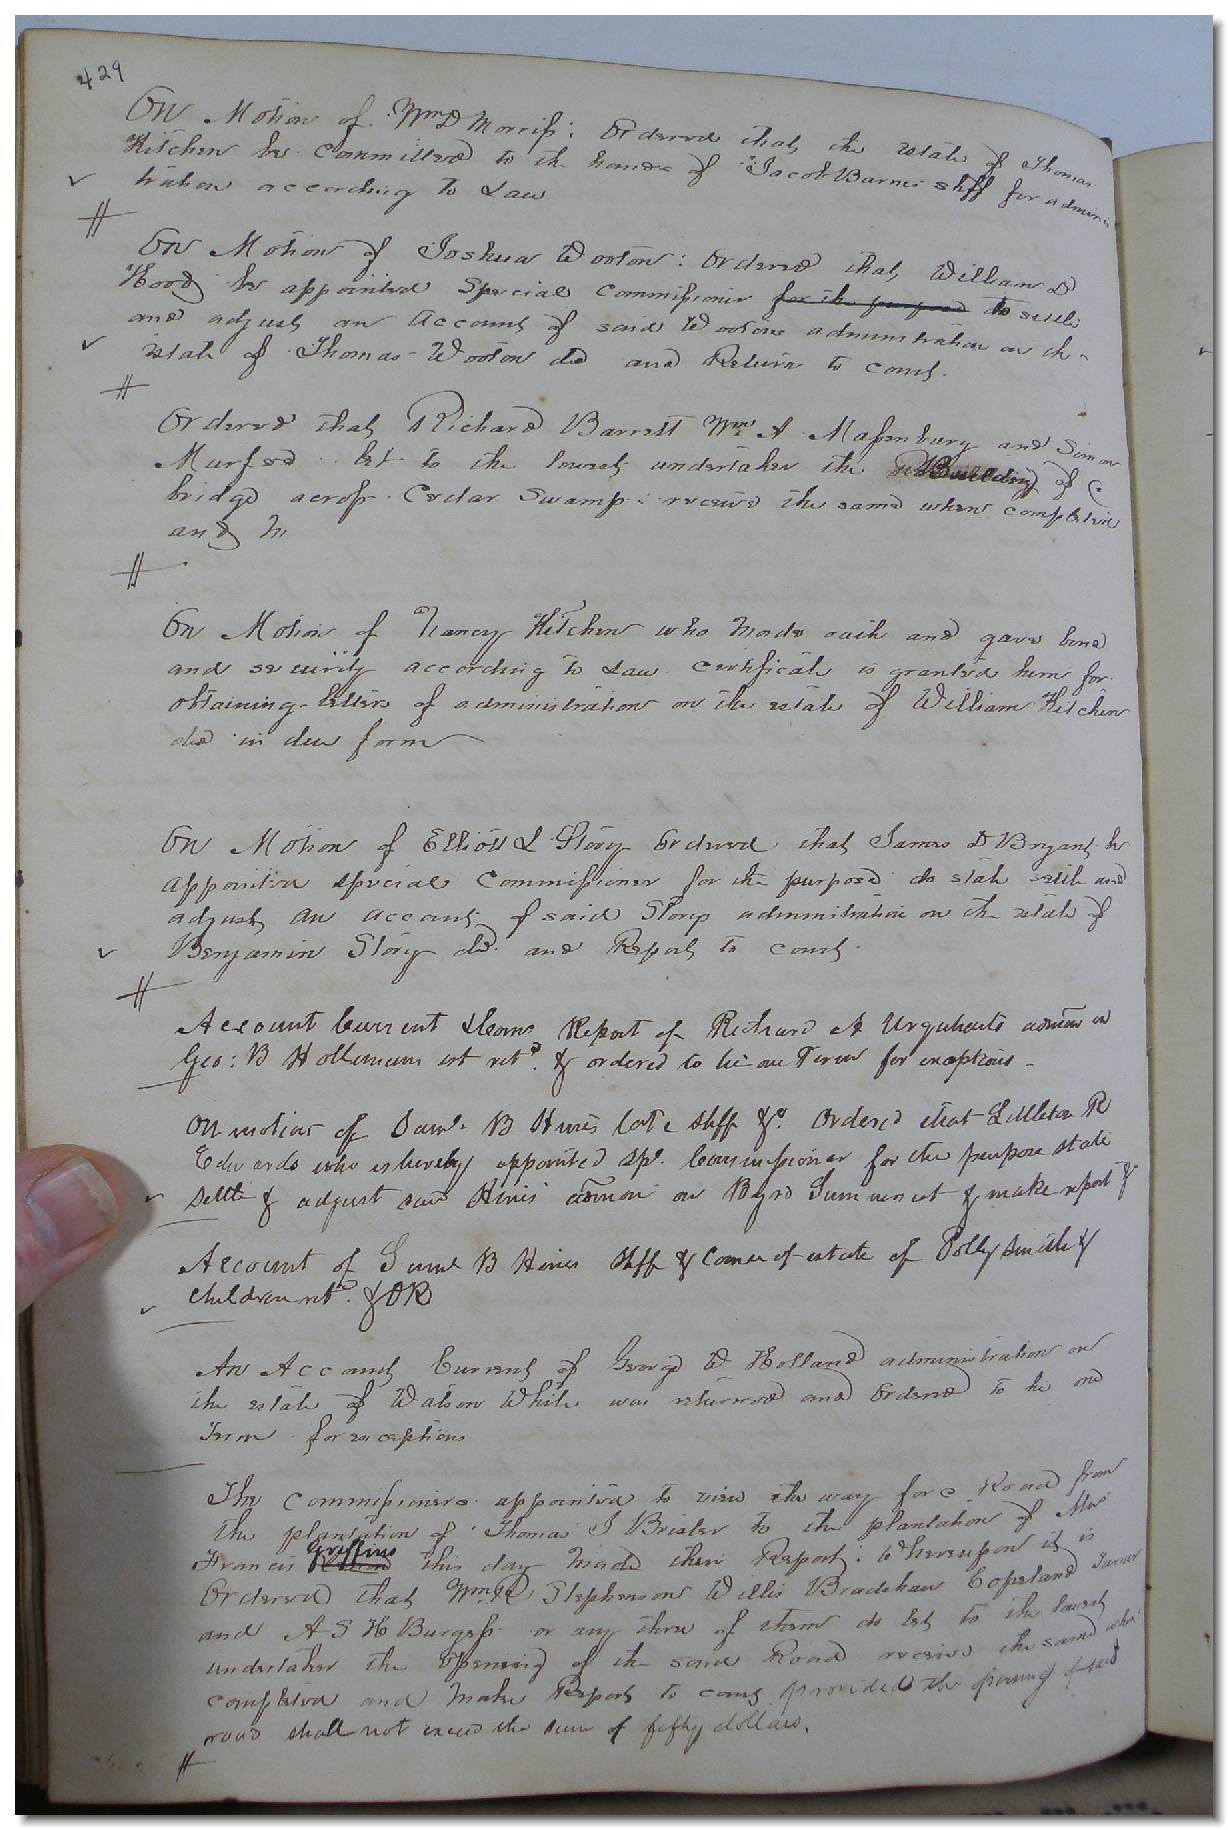 429
On Motion of Wm D Morriss: Ordered that the estate of Thomas
Kitchen be Committed to the hands of Jacob Barnes shff for adminis
tration according to Law
On Motion of Joshua Wooton: Ordered that William D
Hood be appointed Special Commissioner for the purpose to settle
and adjust an Account of said Wootons administration on the
estate of Thomas Wooton decd and Return to court.
Ordered that Richard Barrett Wm A Massenburg and Simon
Murfee let to the lowest undertaker the Building of
bridge across Cedar Swamp: receive the same when completed
and M
On Motion of Nancy Kitchen who made oath and gave bond
and security according to Law Certificate is granted him for
obtaining letters of administration on the estate of William Kitchen
decd in due form
On Motion of Elliott L Story Ordered that James D Bryant be
appointed special Commissioner for the purpose to state settle and
adjust an account of said Storys administration on the estate of
Benjamin Story decd. and Report to court.
Account Current & Coms Report of Richard A Urquharts admn on
Geo: B Hollemans est retd. & ordered to lie one Term for exceptions -
On motion of Saml B Hines late shff &c. Ordered that Littleton R
Edwards who is hereby appointed spl. Commissioner for the purpose state
settle & adjust said Hines' admon on Byrd Summers est & make report &
Account of Saml B Hines Shff & Comee of estate of Polly Smith &
children retd. & OR
An Account Current of George W Holland administration on
the estate of Watson White was returned and Ordered to lie one
Term for exceptions
The Commissioners appointed to view the way for a Road from
the plantation of Thomas J Brister to the plantation of Mrs
Francis Griffins this day made their Report: Whereupon it is
Ordered that Wm Stephenson Willis Bradshaw Copeland Turner
and A S H Burgess or any three of them do let to the lowest
undertaker the Opening of the said Road receive the same when
completed and make Report to court provided the opening of said
road shall not exceed the sum of fifty dollars.